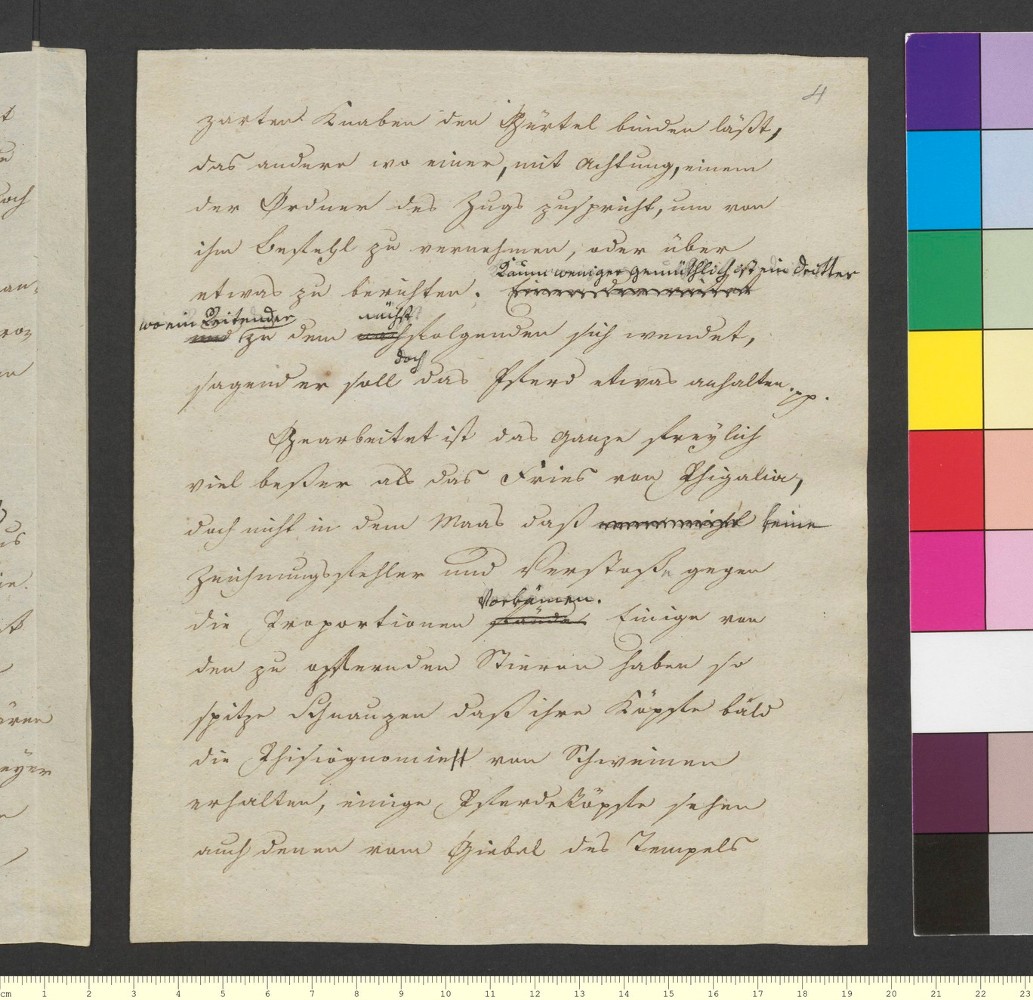 4
zarten Knaben den Gürtel binden läßt,
das andere wo einer, mit Achtung, einem
der Ordner des Zugs zuspricht, um von
ihm Befehl zu vernehmen, oder über
Kaum weniger gemüthlich ist ein dritter
etwas zu berichten.
wo ein Reitender nächst
und zu dem nachfolgenden sich wendet,
doch
sagend er soll das Pferd etwas anhalten. pp.
Gearbeitet ist das Ganze freylich
viel beßer als das Fries von Phigalia,
doch nicht in dem Maas daß keine
Zeichnungsfehler und Verstoße gegen
Vorkämen.
die Proportionen Einige von
den zu opfernden Stieren haben so
spitze Schnauzen daß ihre Köpfe bald
die Phisiognomie von Schweinen
erhalten, einige Pferdeköpfe sehen
auch denen vom Giebel des Tempels